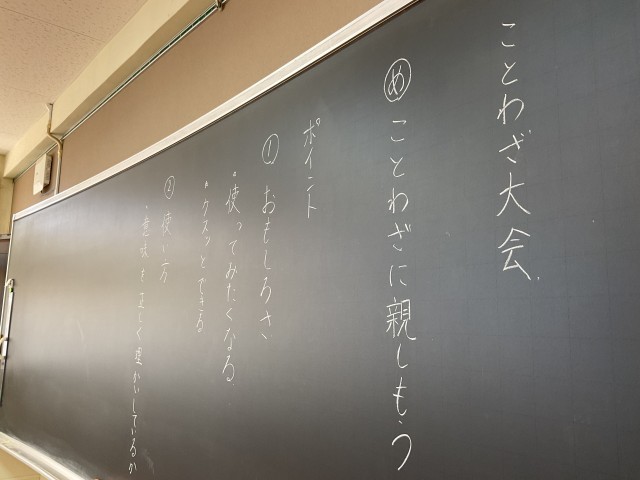 ことわざ大会
めことわざに親しもう
ポイント
① おもしろさ
・使ってみたくなる
・クスッとできる
② 使い方
・意味を正しく理かいしているか